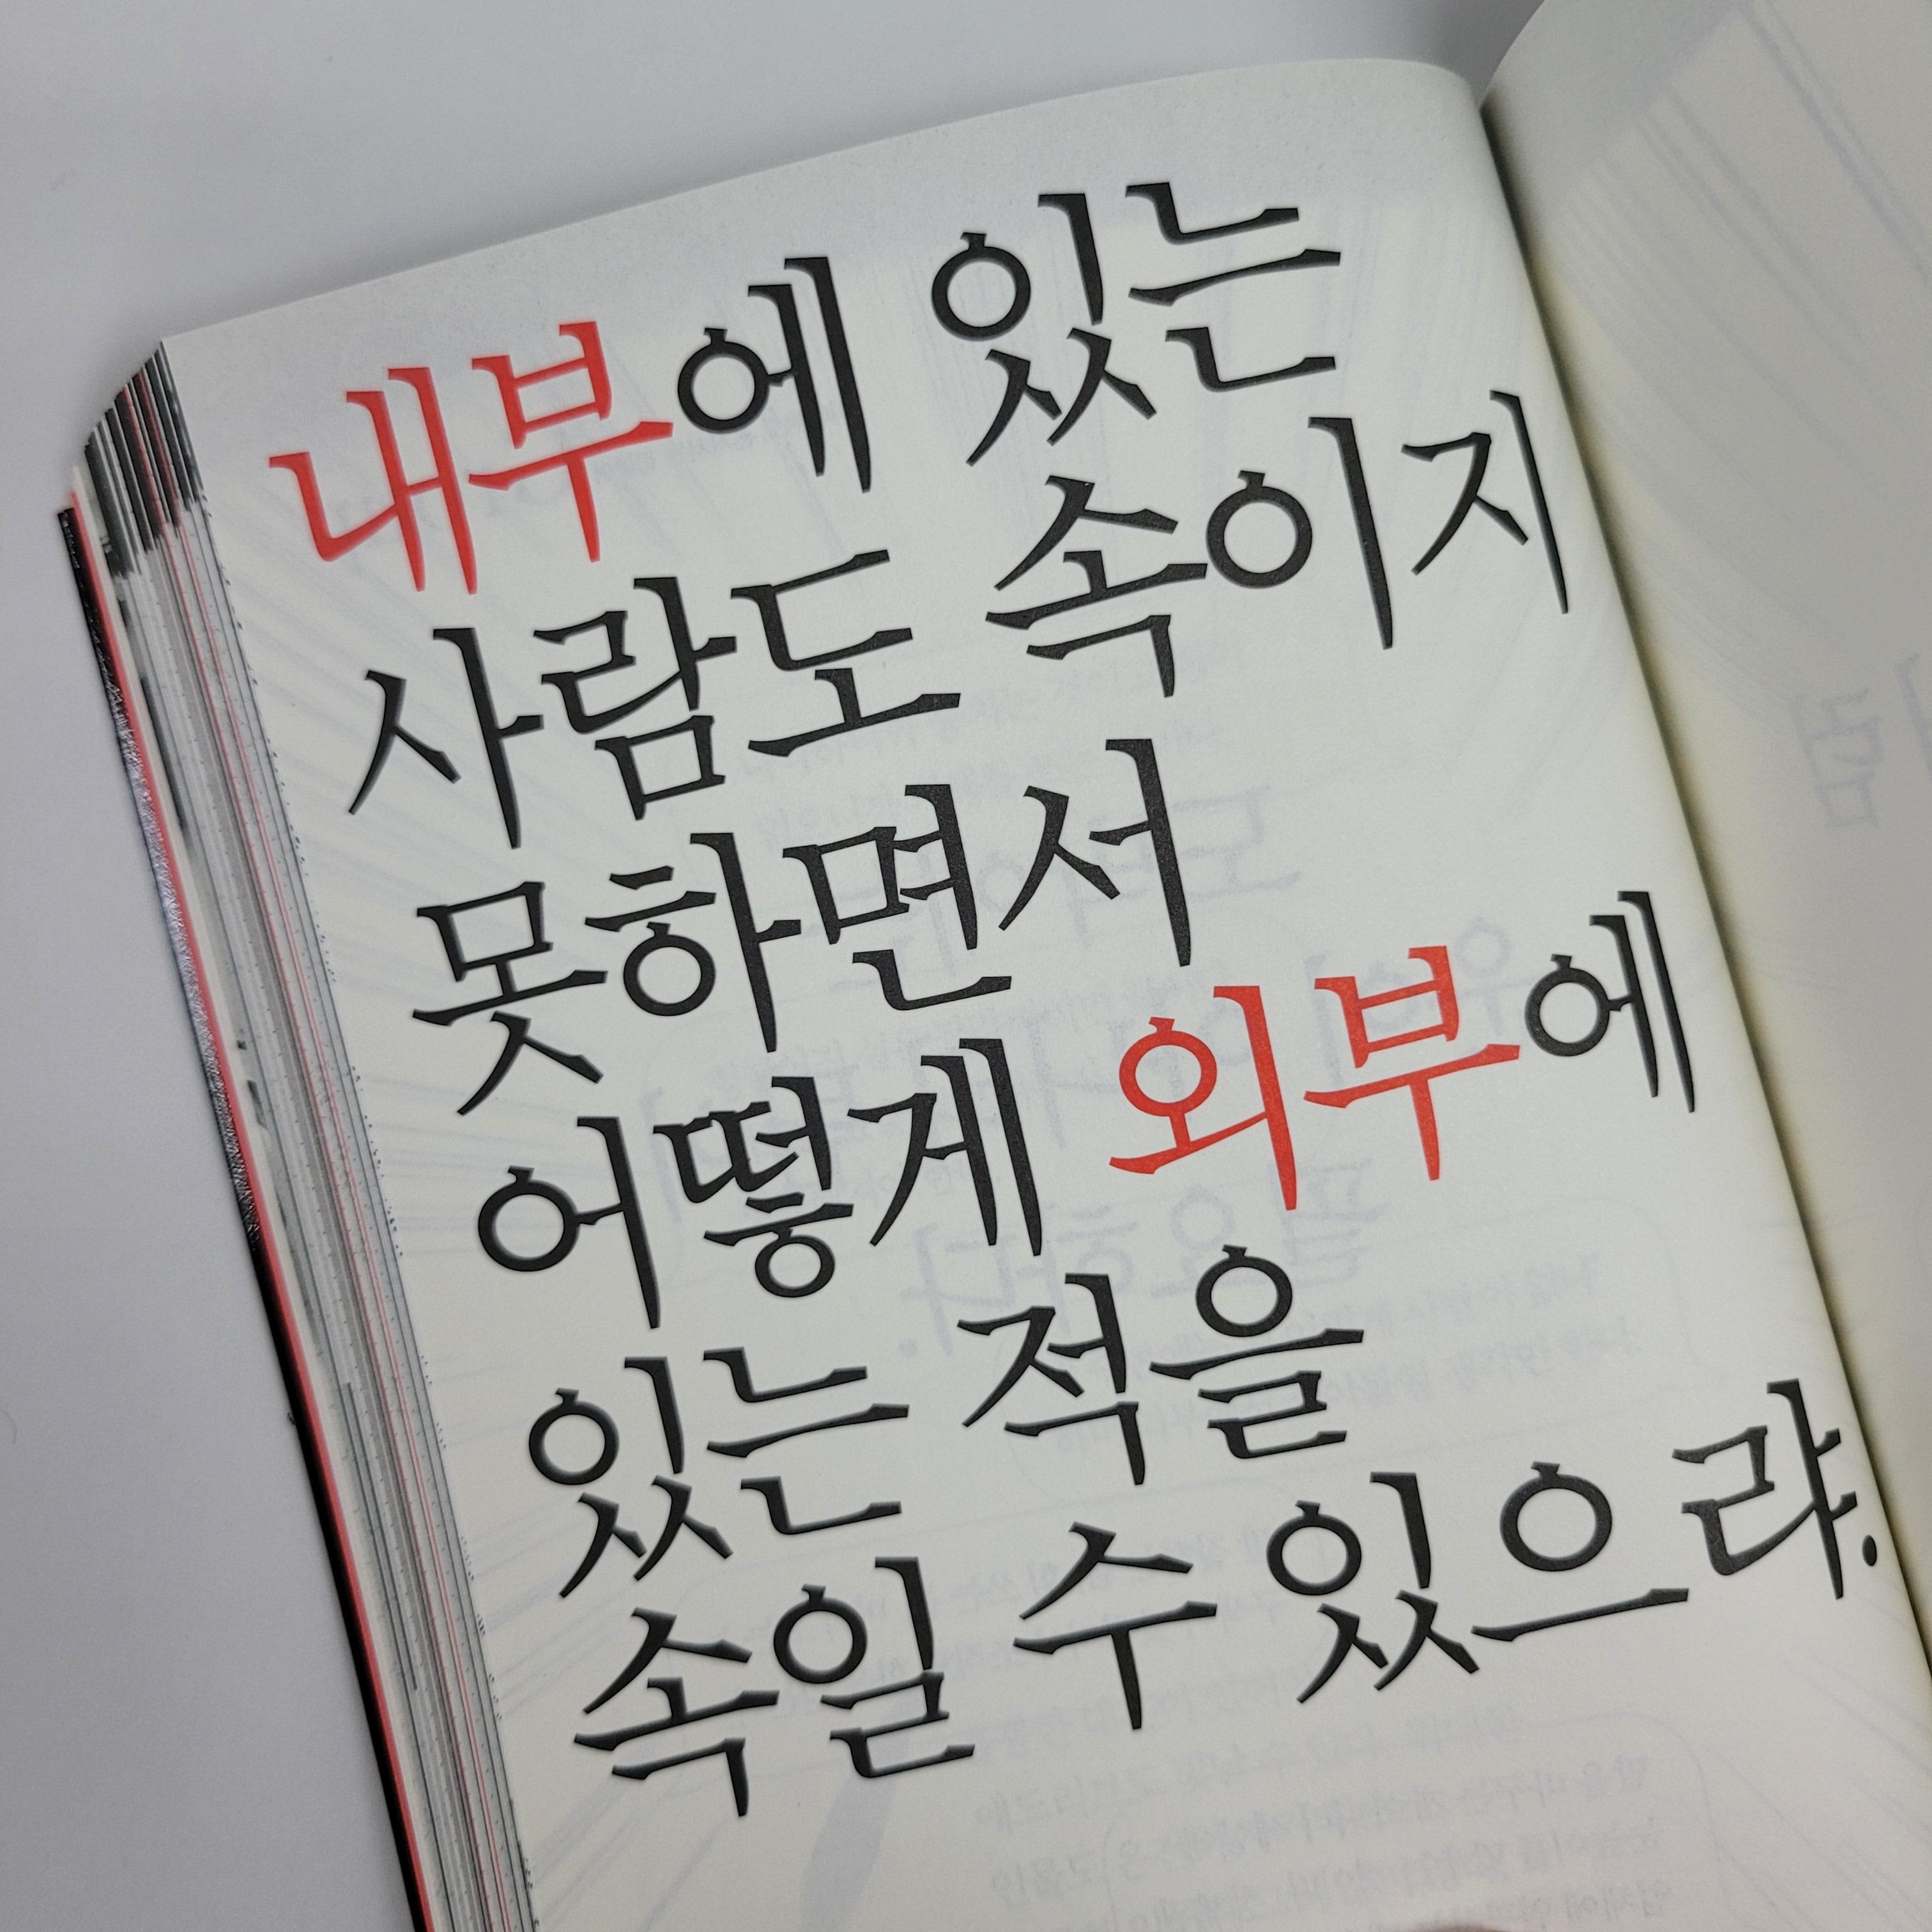 내부에 있는
사람도 속이지
못하면서
어떻게 외부에
있는 적을
속일 수 있으랴.